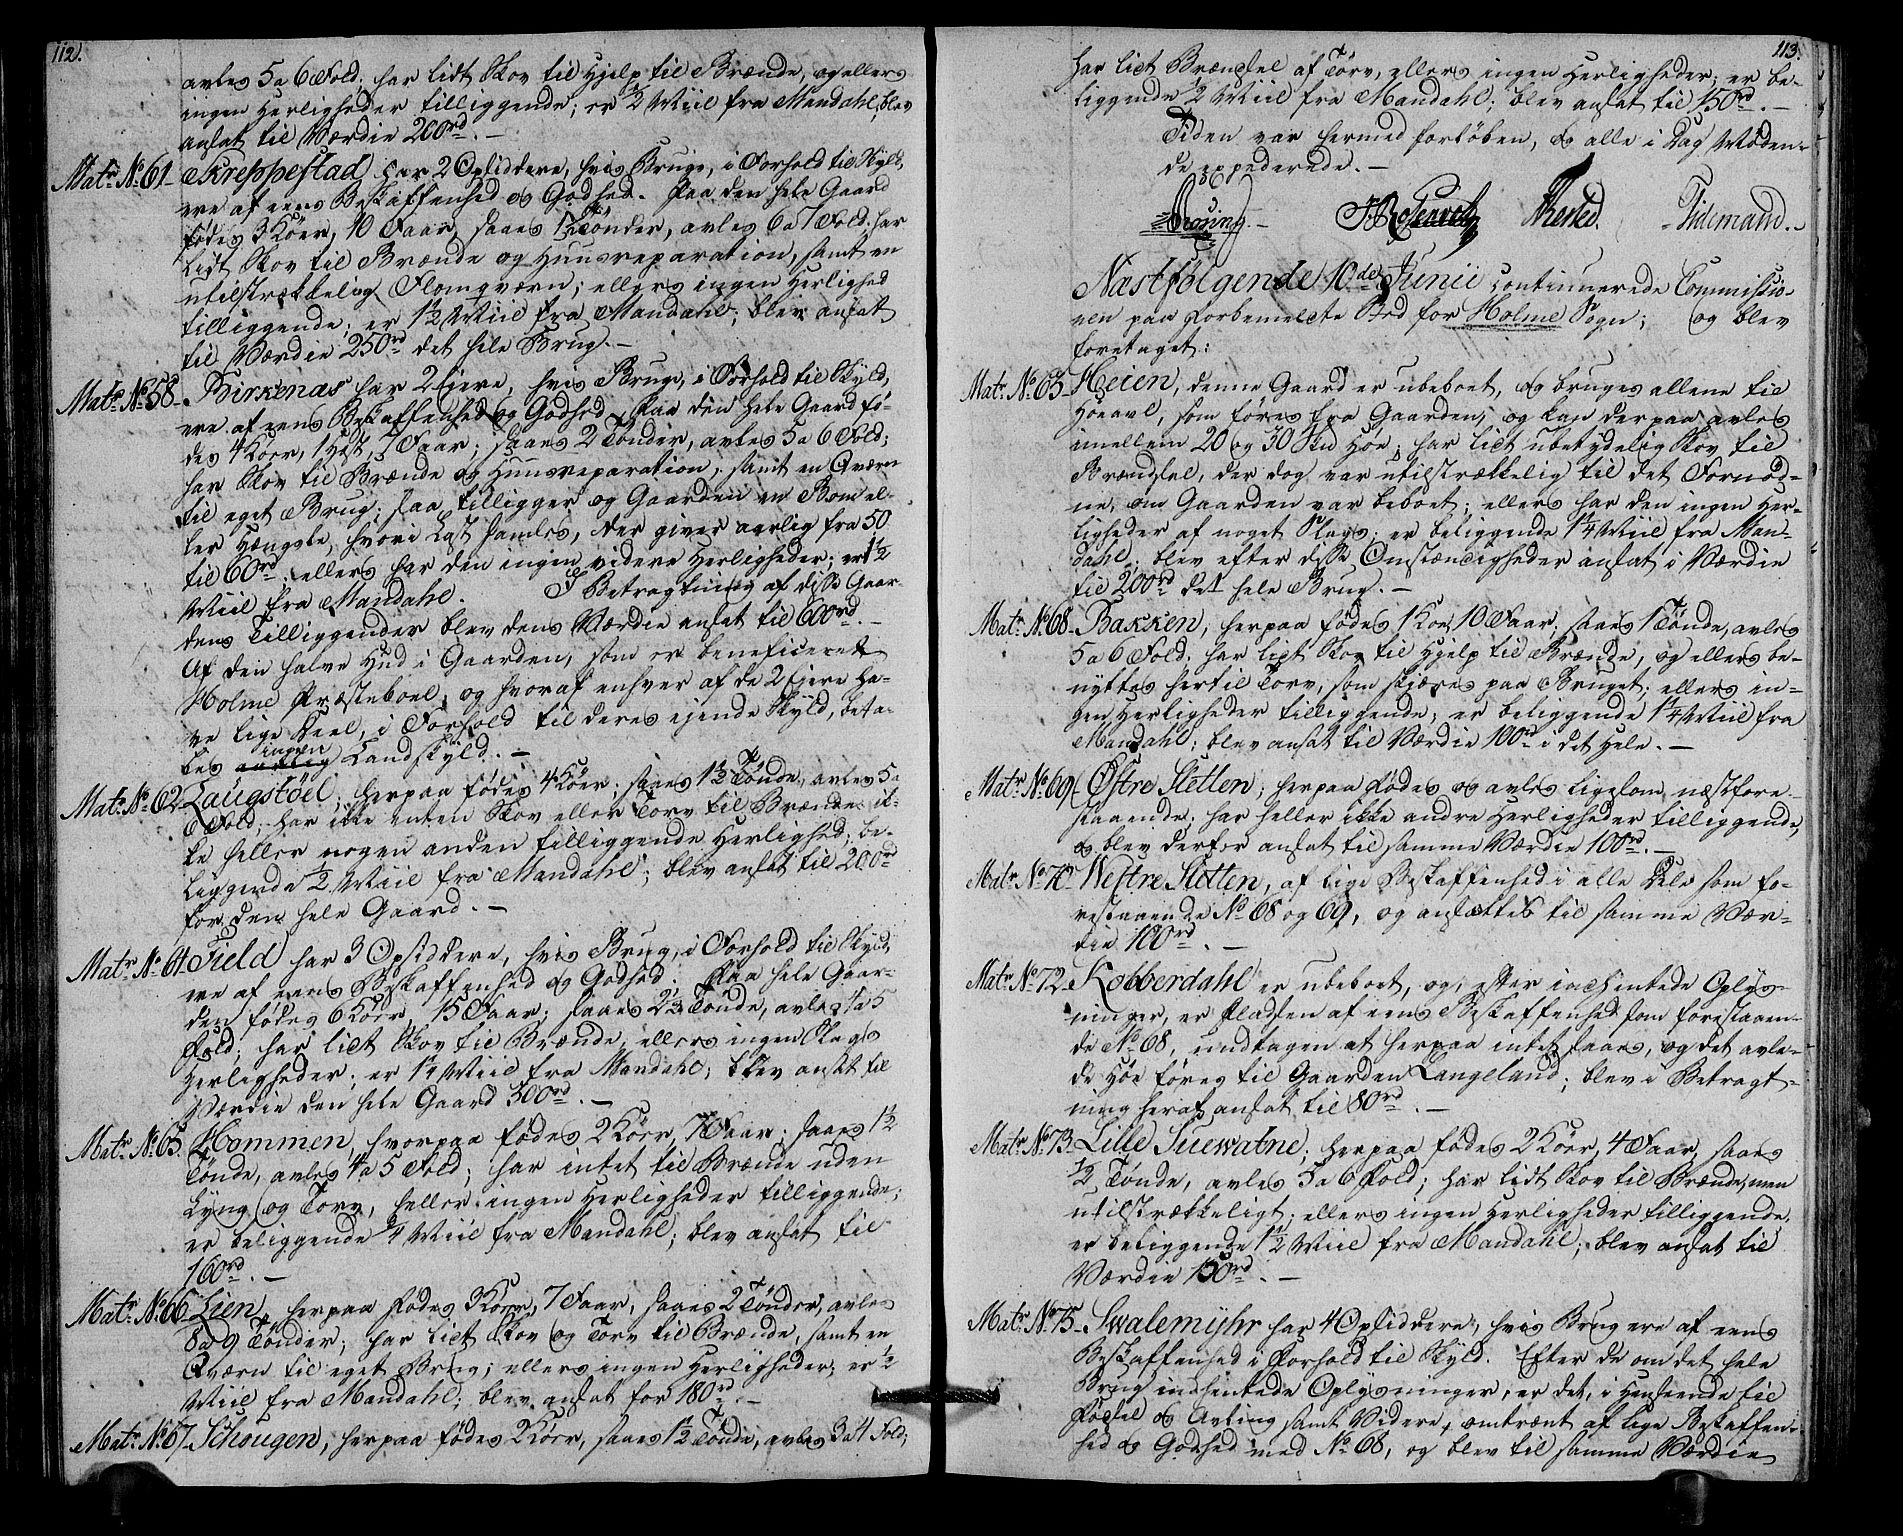 112.
avles 5 a 6 Fold; har lidt Skov til Hjelp til Brænde, og ellers
ingen Herligheder tilliggende; er 1/2 Miil fra Mandahl, blev
ansat til Værdie 200rd. –
Matr. No. 61 – Skreppestad har 2 Opsiddere, hvis Brug, i Forhold til Skyld,
ere af eens Beskaffenhed og Godhed. Paa den hele Gaard
fødes 3 Köer, 10 Faar, saaes Tønder, avles 6 a 7 Fold; har
lidt Skov til Brænde og Huusreparation, samt en
utilstrækkelig Flomqværn; ellers ingen Herlighed
tilliggende; er 1 1/2 Miil fra Mandahl; blev ansat
til Værdie 250rd det hele Brug. –
Matr. No. 58 – Birkenæs har 2 Ejere, hvis Brug, i Forhold til Skyld,
ere af eens Beskaffenhed og Godhed. Paa den hele Gaard fø-
des 4 Köer, 1 Hest, 7 Faar; saaes 2 Tønder, avles 5 a 6 Fold;
har Skov til Brænde og Huusreparation, samt en Qværn
til eget Brug; saa tilligger og Gaarden en Bom el-
ler Hængsle, hvori Last samles, der giver aarlig fra 50
til 60rd; ellers har den ingen videre Herligheder; er 1 1/2
Miil fra Mandahl. I Betragtning af disse Gaar-
dens Tilliggender blev dens Værdie ansat til 600rd. –
Af den halve Hud i Gaarden, som er beneficeret
Holme Præsteboel, og hvoraf enhver af de 2 Ejere ha-
ve lige Deel, i Forhold til deres ejende Skyld, beta-
les aarlig ingen Landskyld. –
Matr. No. 62 Laugstøel, herpaa fødes 4 Köer; saaes 1 1/2 Tønde, avles 5 a
6 Fold; har ikke enten Skov eller Torv til Brænde, ik-
ke heller nogen anden tilliggende Herlighed; be-
liggende 1/2 Miil fra Mandahl; blev ansat til 200rd
for den hele Gaard. –
Matr. No. 64 Field har 3 Opsiddere, hvis Brug, i Forhold til Skyld,
ere af eens Beskaffenhed og Godhed. Paa hele Gaar-
den fødes 6 Köer, 15 Faar; saaes Tønde, avles 4 a 5
Fold; har lidt Skov til Brænde, ellers ingen Slags
Herligheder; er 1/4 Miil fra Mandahl; blev ansat til
Værdie den hele Gaard 300rd. –
Matr. No. 65. Hommen, hvorpaa fødes 2 Köer, 7 Faar; saaes 1 1/2
Tønde, avles 4 a 5 Fold; har intet til Brænde uden
Lyng og Torv, heller ingen Herligheder tilliggende;
er beliggende 1/4 Miil fra Mandahl; blev ansat til
160rd. –
Matr. No. 66 Lien, herpaa fødes 3 Köer, 7 Faar, saaes 2 Tønder, avles
8 a 9 Tønder; har lidt Skov og Torv til Brænde, samt en
Qværn til eget Brug; ellers ingen Herligheder; er 1/2
Miil fra Mandahl; blev ansat for 180rd. –
Matr. No. 67 Schougen, herpaa fødes 2 Köer, saaes 1 1/2 Tønde, avles 3 a 4 Fold;
113.
har lidt Brændsel af Torv, ellers ingen Herligheder; er be-
liggende 2 Miil fra Mandahl; blev ansat til 150rd. –
Tiden var hermed forløben, og alle i Dag Møden-
de expederede. –
Tidemand. –
Næstfølgende 10de Junii continuerede Commissio-
nen paa forbemeldte Sted for Holme Sogn; og blev
foretaget:
Matr. No. 63. Heien, denne Gaard er ubeboet, og bruges allene til
Høeavl, som føres fra Gaarden, og kan derpaa avles
imellem 20 og 30 Hø; har lidt ubetydelig Skov til
Brændsel, der dog var utilstrækkelig til det Fornød-
ne, om Gaarden var beboet; ellers har den ingen Her-
ligheder af noget Slags; er beliggende 1 1/4 Miil fra Man-
dahl; blev efter disse Omstændigheder ansat i Værdie
til 200rd det hele Brug. –
Matr. No. 68 – Bakken, herpaa fødes 1 Koe, 10 Faar, saaes 1 Tønde, avles
5 a 6 Fold; har lidt Skov til Hjelp til Brænde, og ellers be-
nyttes hertil Torv, som skjæres paa Bruget; ellers in-
gen Herligheder tilliggende; er beliggende 1 1/4 Miil fra
Mandahl; blev ansat til Værdie 100rd i det Hele. –
Matr. No. 69 Østre Sletten, herpaa fødes og avles ligesom næstfore-
staaende; har heller ikke andre Herligheder tilliggende,
og blev derfor ansat til samme Værdie 100rd. –
Matr. No. 70 – Westre Sletten, af lige Beskaffenhed i alle Dele som fo-
restaaende No. 68 og 69, og ansættes til samme Vær-
die 100rd. –
Matr. No. 72 – Kobberdahl er ubeboet, og, efter indhentede Oplys-
ninger, er Pladsen af eens Beskaffenhed som forestaaen-
de No. 68, undtagen at herpaa intet saaes, og det avle-
de Høe føres til Gaarden Langeland; blev i Betragt-
ning heraf ansat til 80rd. –
Matr. No. 73 – Lille Suewatne, herpaa fødes 2 Köer, 4 Faar, saaes
1/2 Tønde, avles 5 a 6 Fold; har lidt Skov til Brænde, men
utilstrækkeligt; ellers ingen Herligheder tilliggende,
er beliggende 1 1/2 Miil fra Mandahl; blev ansat til
Værdie 150rd. –
Matr. No. 75 – Swalemyhr har 4 Opsiddere, hvis Brug ere af eens
Beskaffenhed i Forhold til Skyld. Efter de om det hele
Brug indhentede Oplysninger, er det, i Henseende til
Fødsel og Avling samt Videre, omtrent af lige Beskaffen-
hed og Godhed med No. 68, og blev til samme Værdie